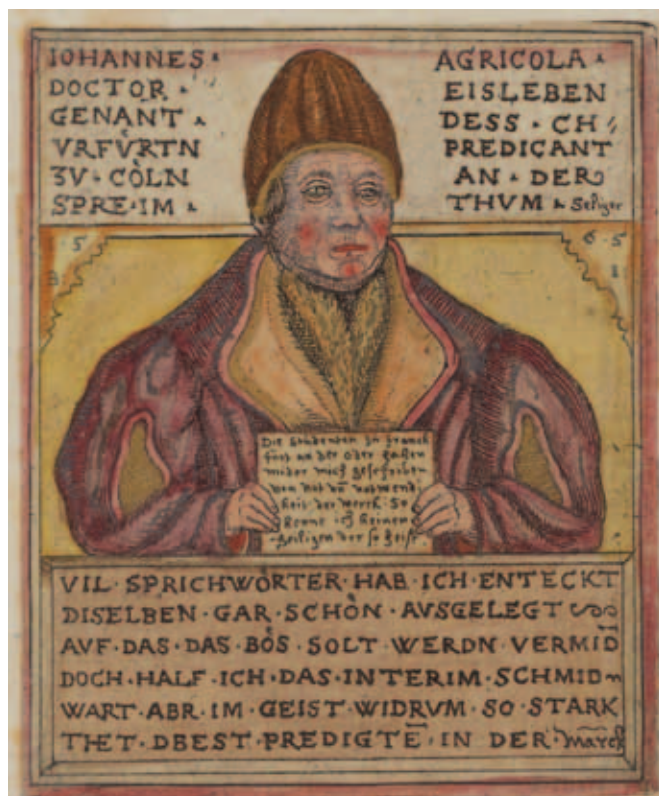 IOHANNES · AGRICOLA ·
DOCTOR · EISLEBEN
GENANT · DESS · CH
VRFÜRTN PREDICANT
ZV · CÖLN AN · DER
SPRE · IM · THVM · Seliger
· 5 6 · 5
Die Studenten zu franck
furt an der Oder
wider mich geschrieben
von not vn notwend:
keit der werck · So
kenne · ich keinen
heiligen der so heist
VIL · SPRICHWÖRTER · HAB · ICH · ENTECKT
DISELBEN · GAR · SCHÖN · AVSGELEGT
AVF · DAS · DAS · BÖS · SOLT · WERDN · VERMID
DOCH · HALF · ICH · DAS · INTERIM · SCHMIDn
WART · ABR · IM · GEIST · WIDRVM · SO · STARK
THET · DBEST · PREDIGTĒ · IN · DER · Marck